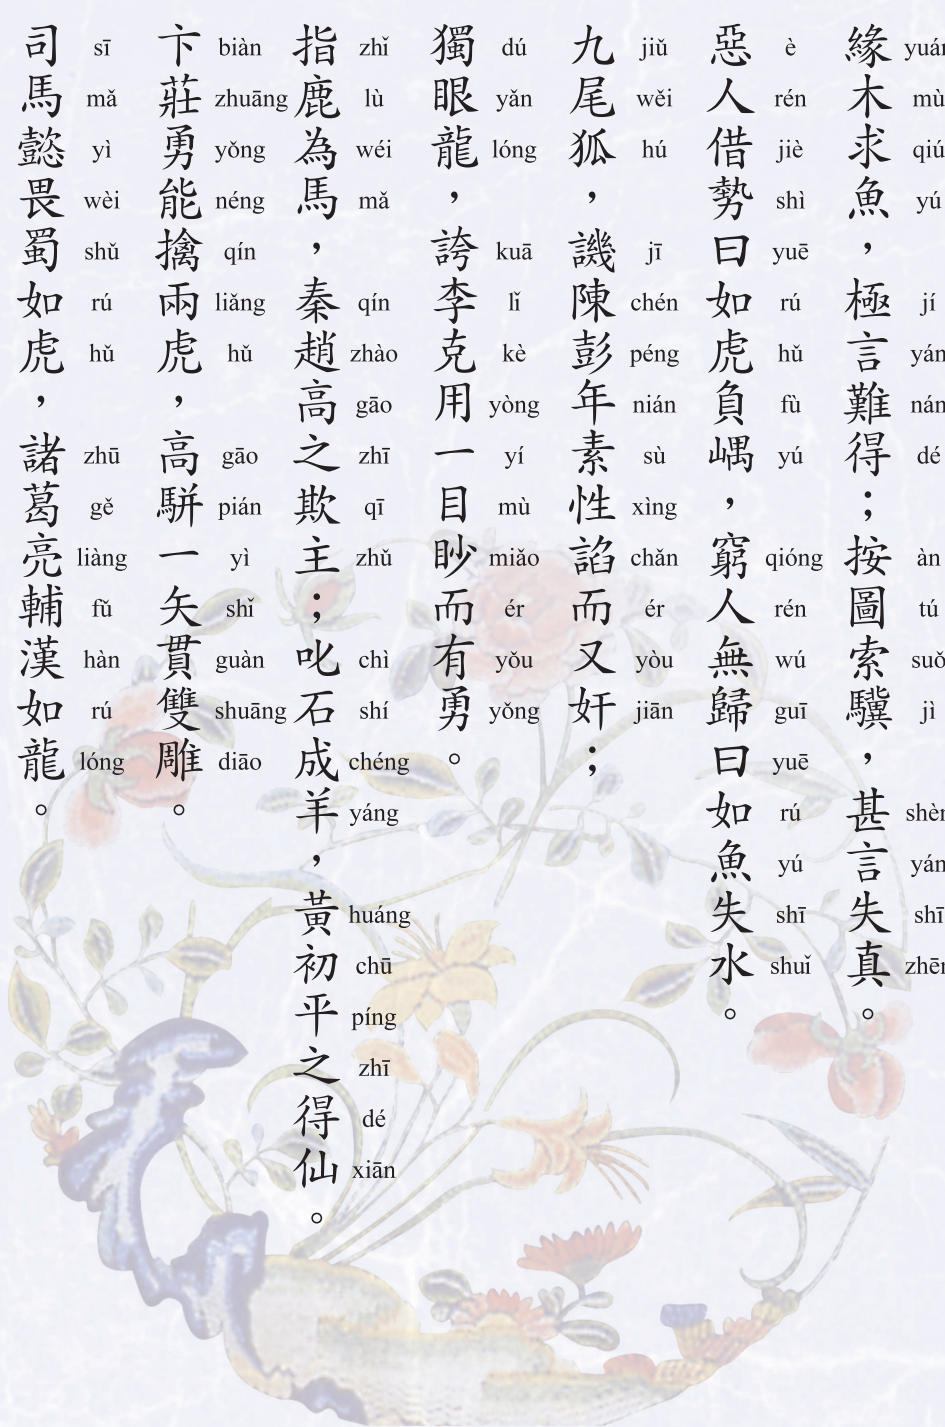 緣木求魚，極言難得；按圖索驥，甚言失真。
yuán mù qiú yú jí yán nán dé àn tú suǒ jì shèn yán shī zhēn
惡人借勢曰如虎負嵎，窮人無歸曰如魚失水。
è rén jiè shì yuē rú hǔ fù yú qióng rén wú guī yuē rú yú shī shuǐ
九尾狐，譏陳彭年素性諂而又奸；
jiǔ wěi hú jī chén péng nián sù xìng chǎn ér yòu jiān
獨眼龍，誇李克用一目眇而有勇。
dú yǎn lóng kuā lǐ kè yòng yí mù miǎo ér yǒu yǒng
指鹿為馬，秦趙高之欺主；叱石成羊，黃初平之得仙。
zhǐ lù wéi mǎ qín zhào gāo zhī qī zhǔ chì shí chéng yáng huáng chū píng zhī dé xiān
卞莊勇能擒兩虎，高駢一矢貫雙雕。
biàn zhuāng yǒng néng qín liǎng hǔ gāo pián yì shǐ guàn shuāng diāo
司馬懿畏蜀如虎，諸葛亮輔漢如龍。
sī mǎ yì wèi shǔ rú hǔ zhū gě liàng fǔ hàn rú lóng